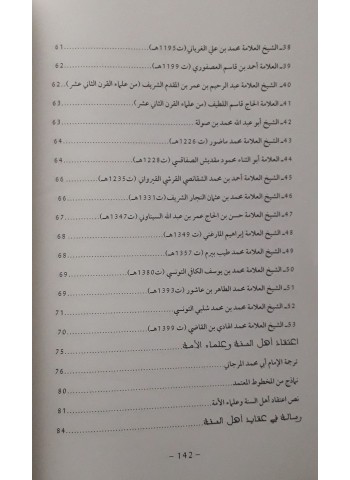 38ـ الشيخ العلامة محمد بن علي الغرياني (ت1195هـ) 61
39ـ العلامة أحمد بن قاسم العصفوري (ت 1199هـ) 62
40ـ الشيخ العلامة عبد الرحيم بن عمر بن المقدم الشريف (من علماء القرن الثاني عشر) 62
41ـ العلامة الحاج قاسم اللطيف (من علماء القرن الثاني عشر) 63
42ـ الشيخ أبو عبد الله محمد بن صولة 63
43ـ الشيخ العلامة محمد ماضور (ت 1226هـ) 64
44ـ العلامة أبو الثناء محمود مقديش الصفاقسي (ت1228هـ) 64
45ـ الشيخ العلامة أحمد بن محمد الشقانصي القرشي القيرواني (ت1235هـ) 66
46ـ الشيخ العلامة محمد بن عثمان النجار الشريف (ت1331هـ) 66
47ـ الشيخ العلامة حسن بن الحاج عمر بن عبد الله السيناوني (ت1347هـ) 67
48ـ الشيخ العلامة إبراهيم المارغني (ت 1349هـ) 68
49ـ الشيخ العلامة محمد طيب بيرم (ت 1357هـ) 68
50ـ الشيخ العلامة محمد بن يوسف الكافي التونسي (ت 1380هـ) 69
51ـ الشيخ العلامة محمد الطاهر بن عاشور (ت1393هـ) 69
52ـ الشيخ العلامة محمد شلبي التونسي 71
53ـ الشيخ العلامة محمد الهادي بن القاضي (ت 1399هـ) 70
اعتقاد أهل السنة وعلماء الأمة 75
ترجمة الإمام أبي محمد المرجاني 76
نماذج من المخطوط المعتمد 80
نص اعتقاد أهل السنة وعلماء الأمة 81
رسالة في عقائد أهل السنة 84
- 142 -